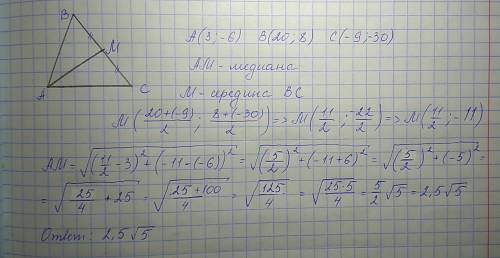 B
M
A
C
A(3;-6) B(20; 8) C(-9;-30)
AM - медиана
M - середина BC
M(\frac{20+(-9)}{2}; \frac{8+(-30)}{2}) => M(\frac{11}{2}; \frac{-22}{2}) => M(\frac{11}{2}; -11)
AM = \sqrt{(\frac{11}{2} - 3)^2 + (-11-(-6))^2} = \sqrt{(\frac{5}{2})^2 + (-11+6)^2} = \sqrt{(\frac{5}{2})^2 + (-5)^2} =
= \sqrt{\frac{25}{4} + 25} = \sqrt{\frac{25+100}{4}} = \sqrt{\frac{125}{4}} = \sqrt{\frac{25·5}{4}} = \frac{5}{2}\sqrt{5} = 2,5\sqrt{5}
Ответ: 2,5\sqrt{5}